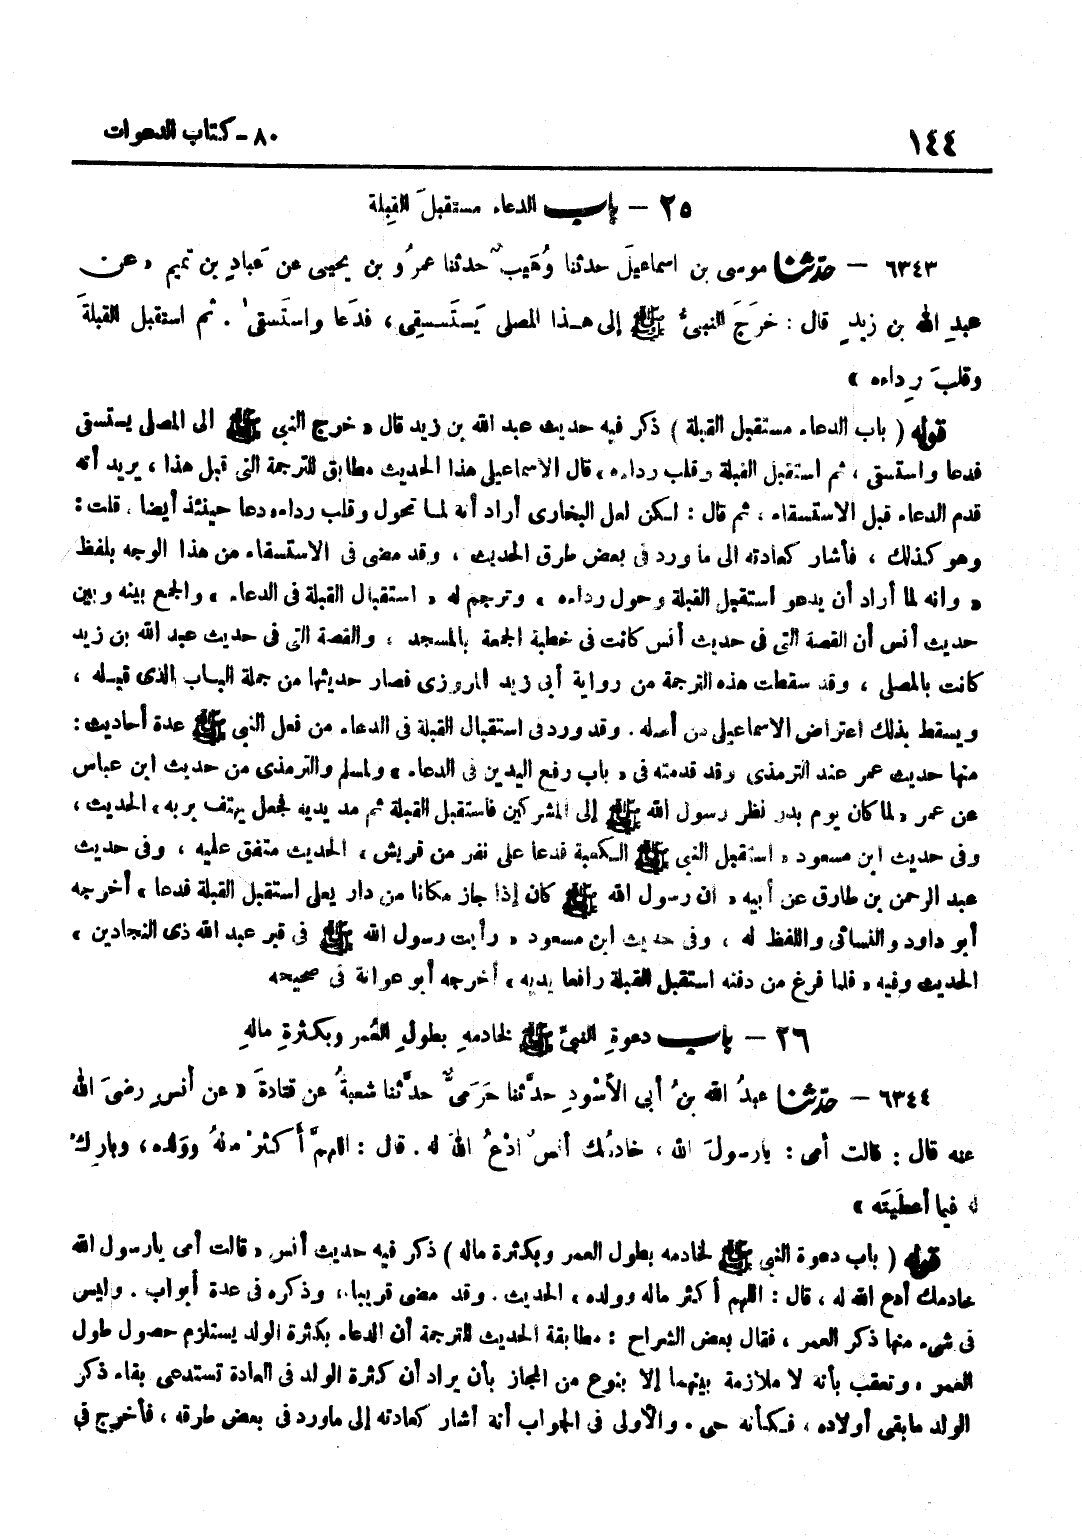 ١٤٤ ٨٠ - كتاب الدعوات
٢٥ - باب الدعاء مستقبلَ القِبلة
٦٣٤٣ - حدّثنا موسى بن اسماعيلَ حدثنا وُهَيبٌ حدثنا عمرُو بن يحيى عن عَبادِ بن تميم «عن
عبدِ الله بن زيدٍ قال : خرَجَ النبىُّ ﷺ إلى هـذا المصلى يَستَسقِى ، فدَعا واستَسقىٰ . ثم استقبل القبلةَ
وقلبَ رِداءه »
قوله ( باب الدعاء مستقبل القبلة ) ذكر فيه حديث عبد الله بن زيد قال « خرج النبى ﷺ الى المصلى يستسقى
فدعا واستسقى ، ثم استقبل القبلة وقلب رداءه ، قال الاسماعيلى هذا الحديث مطابق للترجمة التى قبل هذا ، يريد أنه
قدم الدعاء قبل الاستسقاء ، ثم قال : لـكن لعل البخارى أراد أنه لمـا تحول وقلب رداءه دعا حينئذ أيضا . قلت :
وهو كذلك ، فأشار كعادته الى ما ورد فى بعض طرق الحديث ، وقد مضى فى الاستسقاء من هذا الوجه بلفظ
« وانه لما أراد أن يدعو استقبل القبلة وحول رداءه » وترجم له « استقبال القبلة فى الدعاء » والجمع بينه وبين
حديث أنس أن القصة التى فى حديث أنس كانت فى خطبة الجمعة بالمسجد ، والقصة التى فى حديث عبد الله بن زيد
كانت بالمصلى ، وقد سقطت هذه الترجمة من رواية أبى زيد المروزى فصار حديثها من جملة البـاب الذى قبـله ،
ويسقط بذلك اعتراض الاسماعيلى من أصله . وقد ورد فى استقبال القبلة فى الدعاء من فعل النبى ﷺ عدة أحاديث :
منها حديث عمر عند الترمذى وقد قدمته فى « باب رفع اليدين فى الدعاء » ولمسلم والترمذى من حديث ابن عباس
عن عمر « لما كان يوم بدر نظر رسول الله ﷺ إلى المشركين فاستقبل القبلة ثم مد يديه فجعل يهتف بربه ، الحديث ،
وفى حديث ابن مسعود « استقبل النبى ﷺ الـكعبة فدعا على نفر من قريش ، الحديث متفق عليه ، وفى حديث
عبد الرحمن بن طارق عن أبيه « ان رسول الله ﷺ كان إذا جاز مكانا من دار يعلى استقبل القبلة فدعا » أخرجه
أبو داود والنسائى واللفظ له ، وفى حديث ابن مسعود « رأيت رسول الله ﷺ فى قبر عبد الله ذى النجادين »
الحديث وفيه « فلما فرغ من دفنه استقبل القبلة رافعا يديه ، أخرجه أبو عوانة فى صحيحه
٢٦ - باب دعوةِ النبىِّ ﷺ لخادمهِ بطولِ العُمر وبكثرةِ مالهِ
٦٣٤٤ - حدّثنا عبدُ الله بنُ أبى الأسْودِ حدَّثنا حَرَمىٌّ حدَّثنا شعبةُ عن قتادةَ « عن أنسٍ رضىَ الله
عنه قال : قالت أمى : يارسولَ الله ، خادمُك أنسٌ ادْعُ اللهَ له . قال : اللهمَّ أكثرْ مالهُ وولَده ، وبارِكْ
له فيما أعطَيتَه »
قوله ( باب دعوة النبى ﷺ لخادمه بطول العمر وبكثرة ماله ) ذكر فيه حديث أنس « قالت أمى يارسول الله
خادمك أدع الله له ، قال : اللهم أكثر ماله وولده ، الحديث . وقد مضى قريبا ، وذكره فى عدة أبواب . وليس
فى شىء منها ذكر العمر ، فقال بعض الشراح : مطابقة الحديث للترجمة أن الدعاء بكثرة الولد يستلزم حصول طول
العمر ، وتعقب بأنه لا ملازمة بينهما إلا بنوع من المجاز بأن يراد أن كثرة الولد فى العادة تستدعى بقاء ذكر
الولد مابقى أولاده ، فـكأنه حى . والأولى فى الجواب أنه أشار كعادته إلى ماورد فى بعض طرقه ، فأخرج فى